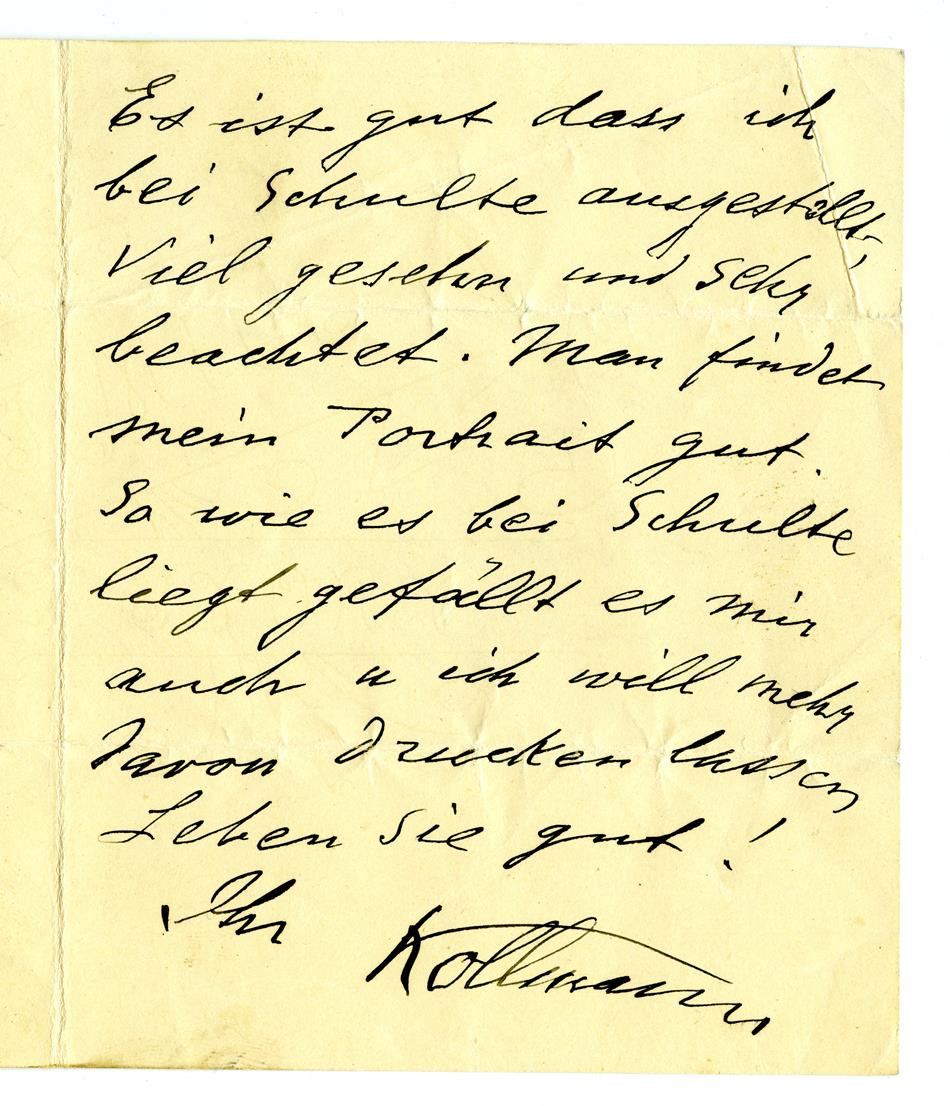 Es ist gut dass ich
bei Schulte ausgestellt.
Viel gesehn und sehr
beachtet. Man findet
mein Portrait gut.
So wie es bei Schulte
liegt gefällt es mir
auch u ich will mehr
davon drucken lassen
Leben Sie gut!
Ihr Kollmann